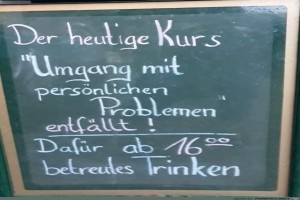 Der heutige Kurs
"Umgang mit
persönlichen
Problemen"
entfällt !
Dafür ab 16⁰⁰
betreutes Trinken